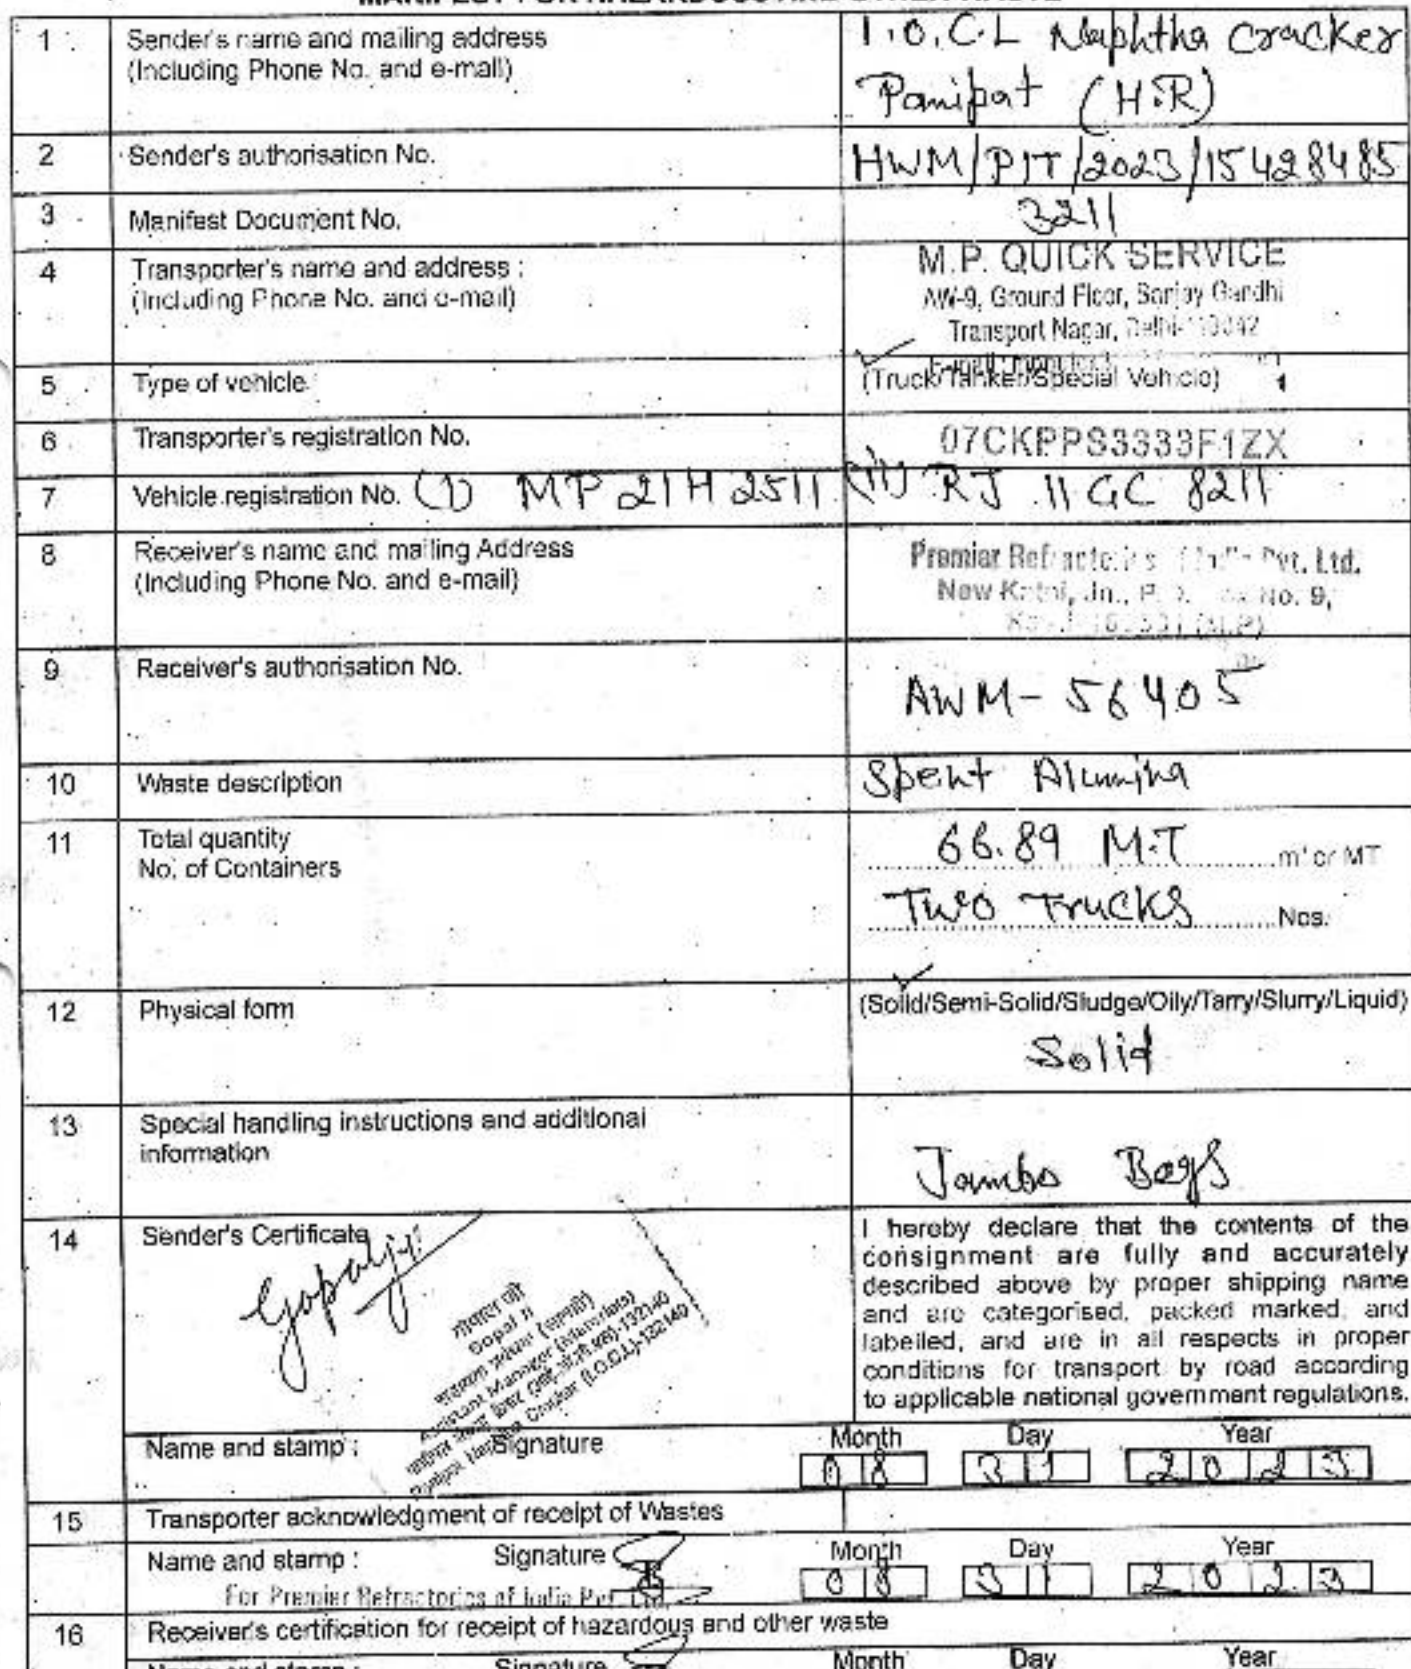 1 Sender's name and mailing address
(Including Phone No. and e-mail)
I.O.C.L Naphtha Cracker
Panipat (H.R)
2 Sender's authorisation No. HWM/PIT/2023/15428485
3 Manifest Document No. 3211
4 Transporter's name and address :
(Including Phone No. and e-mail)
M.P. QUICK SERVICE
AW-9, Ground Floor, Sanjay Gandhi
Transport Nagar, Delhi-110042
5 Type of vehicle (Truck/Tanker/Special Vehicle)
6 Transporter's registration No. 07CKPPS3333F1ZX
7 Vehicle registration No. (I) MP 21H 2511 (II) RJ 11 GC 8211
8 Receiver's name and mailing Address
(Including Phone No. and e-mail)
Premier Refractories Pvt. Ltd.
New Katni, Jn., No. 9,
(M.P)
9 Receiver's authorisation No. AWM-56405
10 Waste description Spent Alumina
11 Total quantity
No. of Containers
66.89 M.T m³ or MT
Two Trucks Nos.
12 Physical form (Solid/Semi-Solid/Sludge/Oily/Tarry/Slurry/Liquid)
Solid
13 Special handling instructions and additional
information
Jambo Bags
14 Sender's Certificate
Gopalji
गोपाल जी
Gopal Ji
सहायक प्रबंधक (सामग्री)
Assistant Manager (Materials)
Panipat Naphtha Cracker (I.O.C.L)-132140
I hereby declare that the contents of the
consignment are fully and accurately
described above by proper shipping name
and are categorised, packed marked, and
labelled, and are in all respects in proper
conditions for transport by road according
to applicable national government regulations.
Name and stamp : Signature Month Day Year
08 31 2023
15 Transporter acknowledgment of receipt of Wastes
Name and stamp : Signature Month Day Year
08 31 2023
For Premier Refractories of India Pvt. Ltd.
16 Receiver's certification for receipt of hazardous and other waste
Name and stamp : Signature Month Day Year